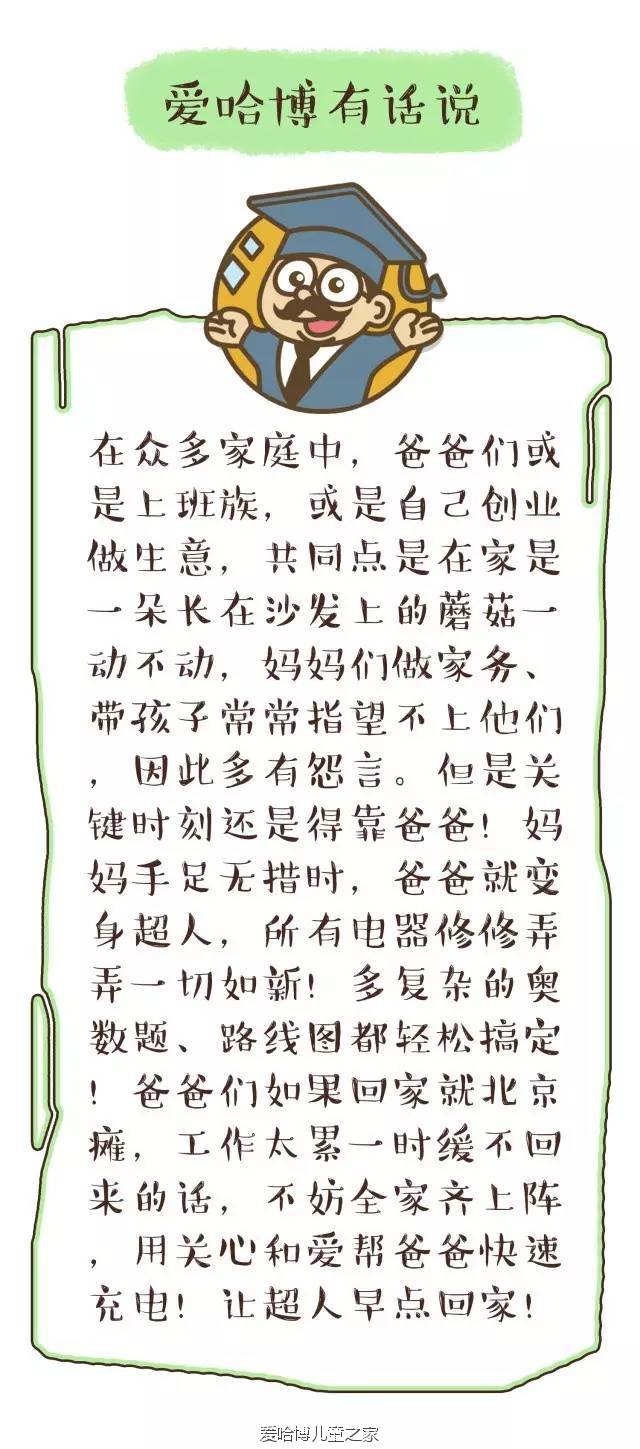 爱哈博有话说
在众多家庭中，爸爸们或
是上班族，或是自己创业
做生意，共同点是在家是
一朵长在沙发上的蘑菇一
动不动，妈妈们做家务、
带孩子常常指望不上他们
，因此多有怨言。但是关
键时刻还是得靠爸爸！妈
妈手足无措时，爸爸就变
身超人，所有电器修修弄
弄一切如新！多复杂的奥
数题、路线图都轻松搞定
！爸爸们如果回家就北京
瘫，工作太累一时缓不回
来的话，不妨全家齐上阵
，用关心和爱帮爸爸快速
充电！让超人早点回家！
爱哈博儿童之家